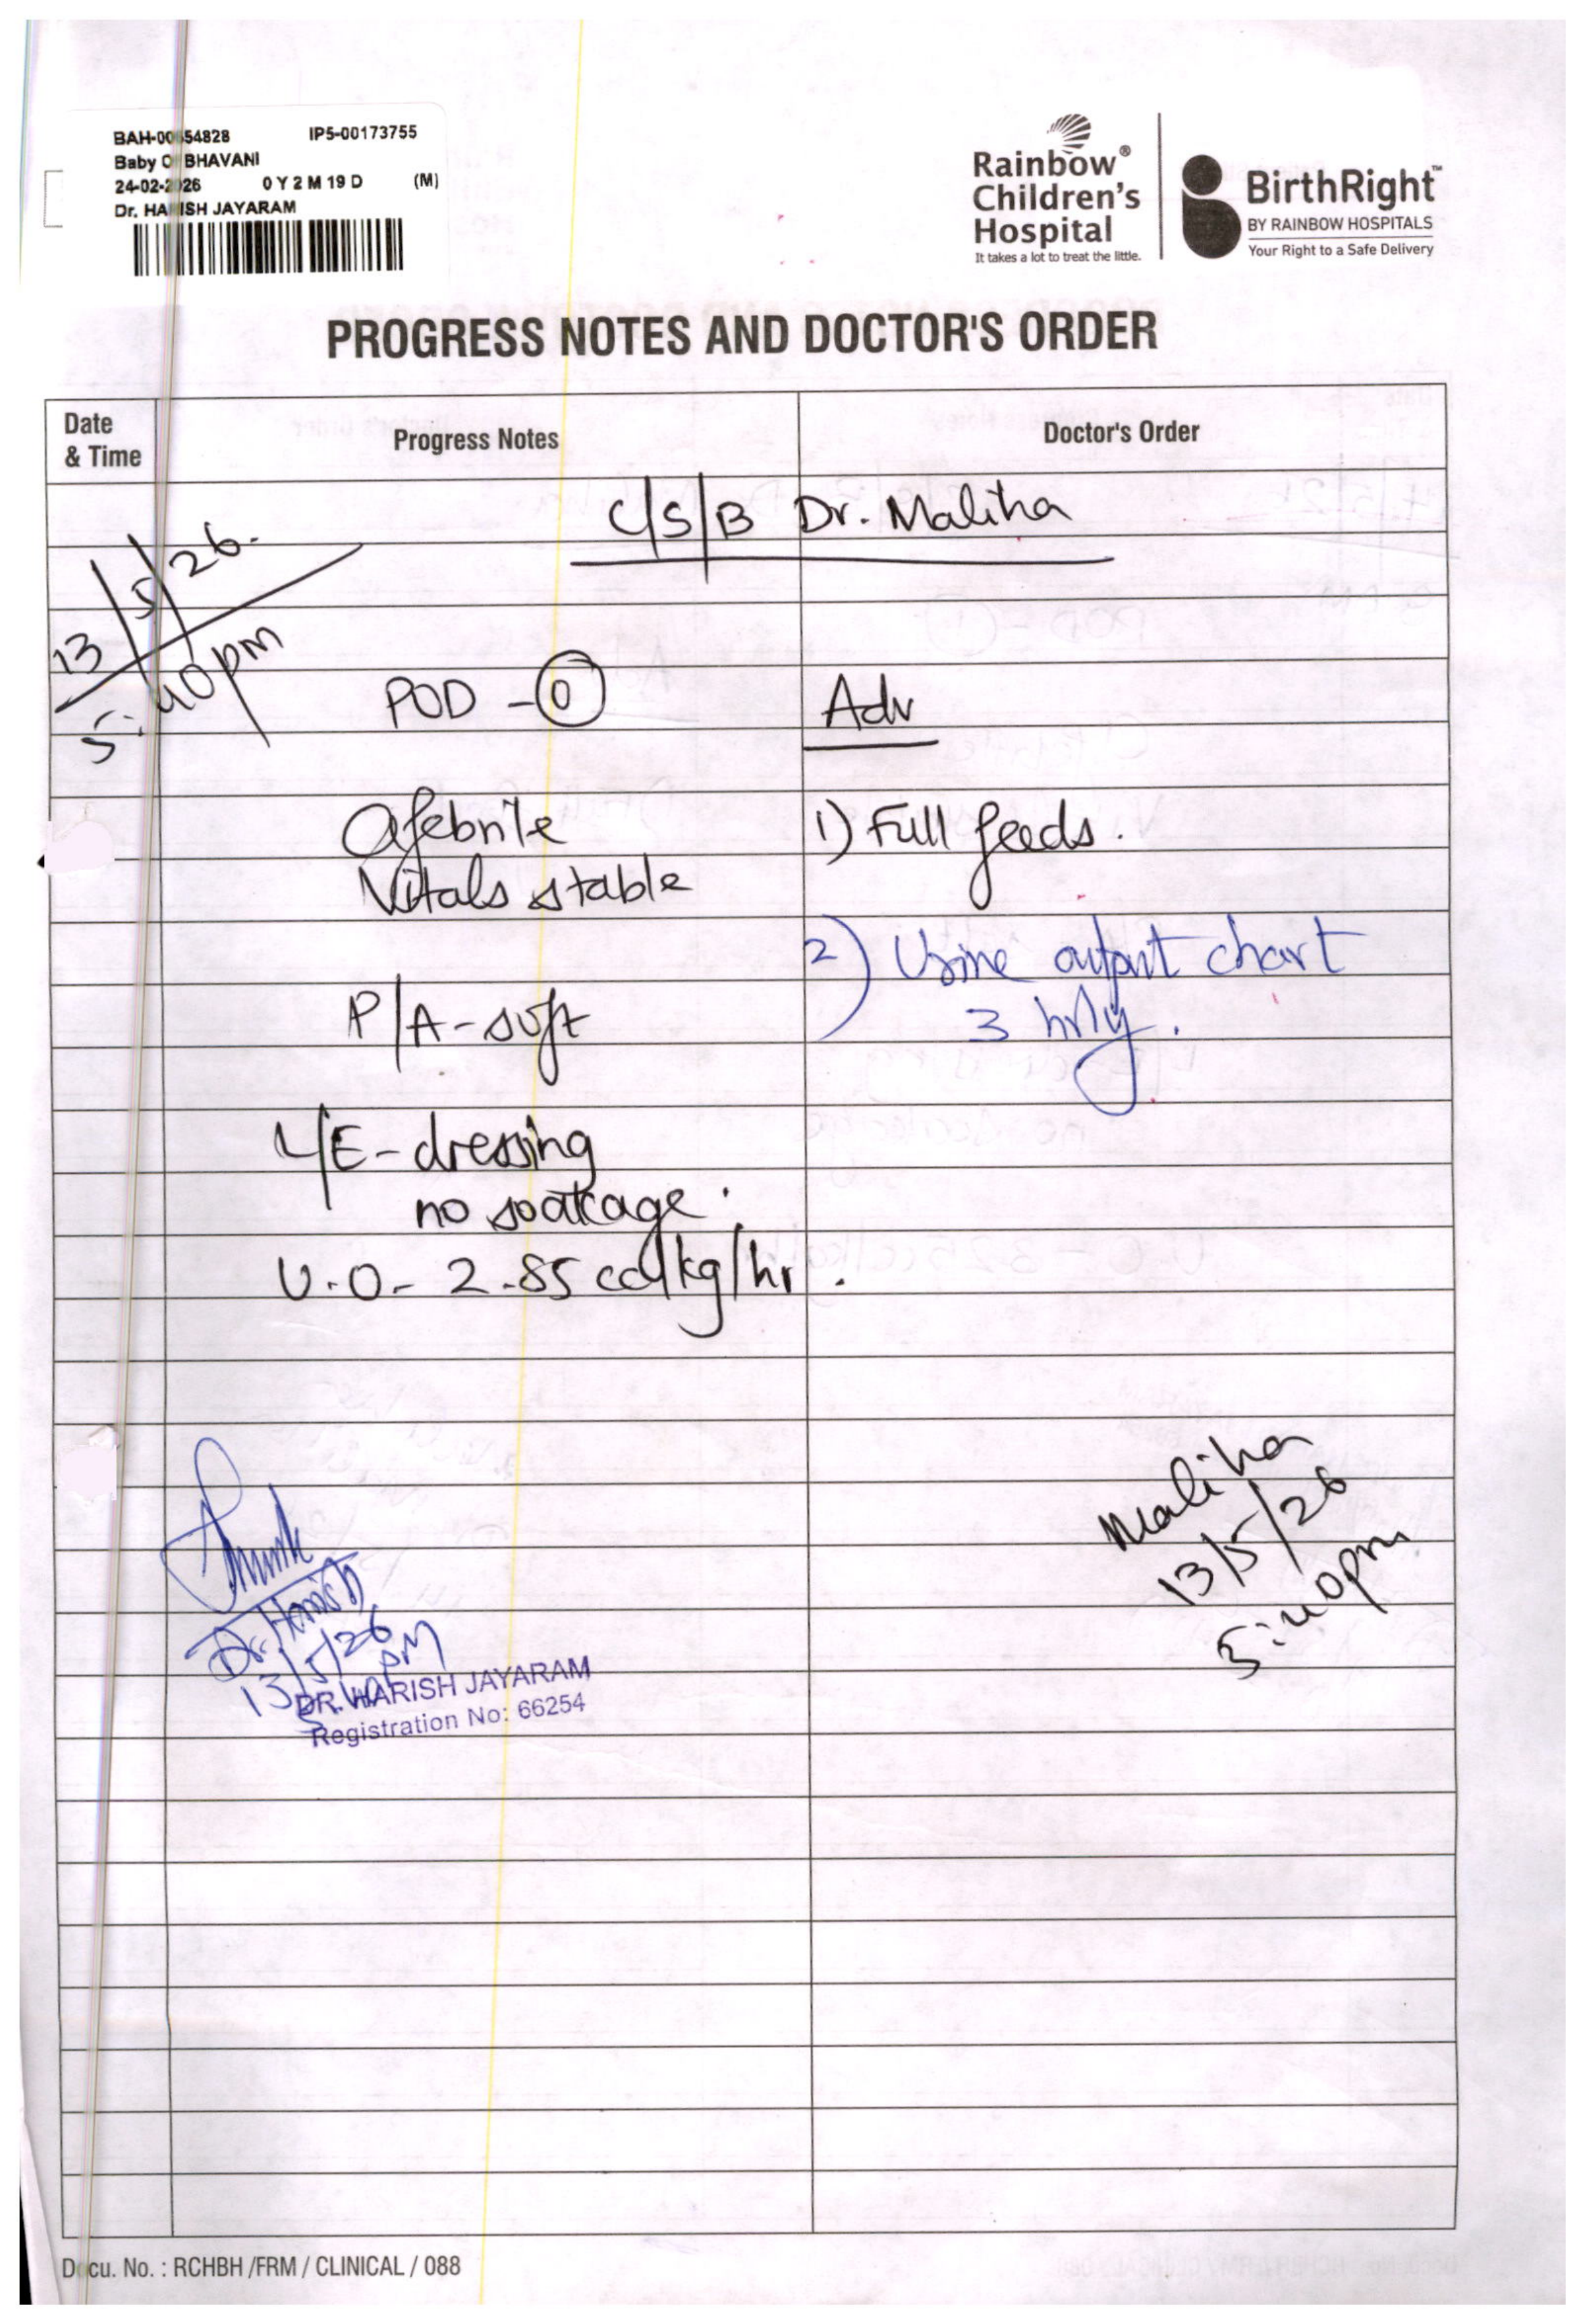 BAH-00654828 IP5-00173755
Baby Of BHAVANI
24-02-2026 0 Y 2 M 19 D (M)
Dr. HARISH JAYARAM
Rainbow®
Children's
Hospital
It takes a lot to treat the little.
BirthRight™
BY RAINBOW HOSPITALS
Your Right to a Safe Delivery
PROGRESS NOTES AND DOCTOR'S ORDER
Date & Time
Progress Notes
Doctor's Order
C/S/B Dr. Maliha
13/5/26.
5:40pm
POD - 0
Adv
Afebrile
1) Full feeds.
Vitals stable
2) Urine output chart
3 hrly.
P/A - soft
L/E - dressing
no soakage.
U.O - 2.85 cc/kg/hr.
Maliha
13/5/26
5:40pm
Dr. Harish
13/5/26
PM
DR. HARISH JAYARAM
Registration No: 66254
Docu. No. : RCHBH /FRM / CLINICAL / 088